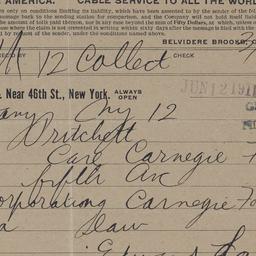 AMERICA. CABLE SERVICE TO ALL THE WORL
only on conditions limiting its liability, which have been assented to by the sender of the
message back to the sending station for comparison, and the Company will not hold itself liable
of tolls paid thereon, nor in any case beyond the sum of Fifty Dollars, at which, unless
the claim is not presented in writing within sixty days after the message is filed with the
by request of the sender, under the conditions named above.
BELVIDERE BROOKS,
12 Collect CHECK
Near 46th St., New York. ALWAYS OPEN
JUN 12 1911
any Ny 12
Pritchett
Care Carnegie
fifth Ave
corporating Carnegie Fo
law